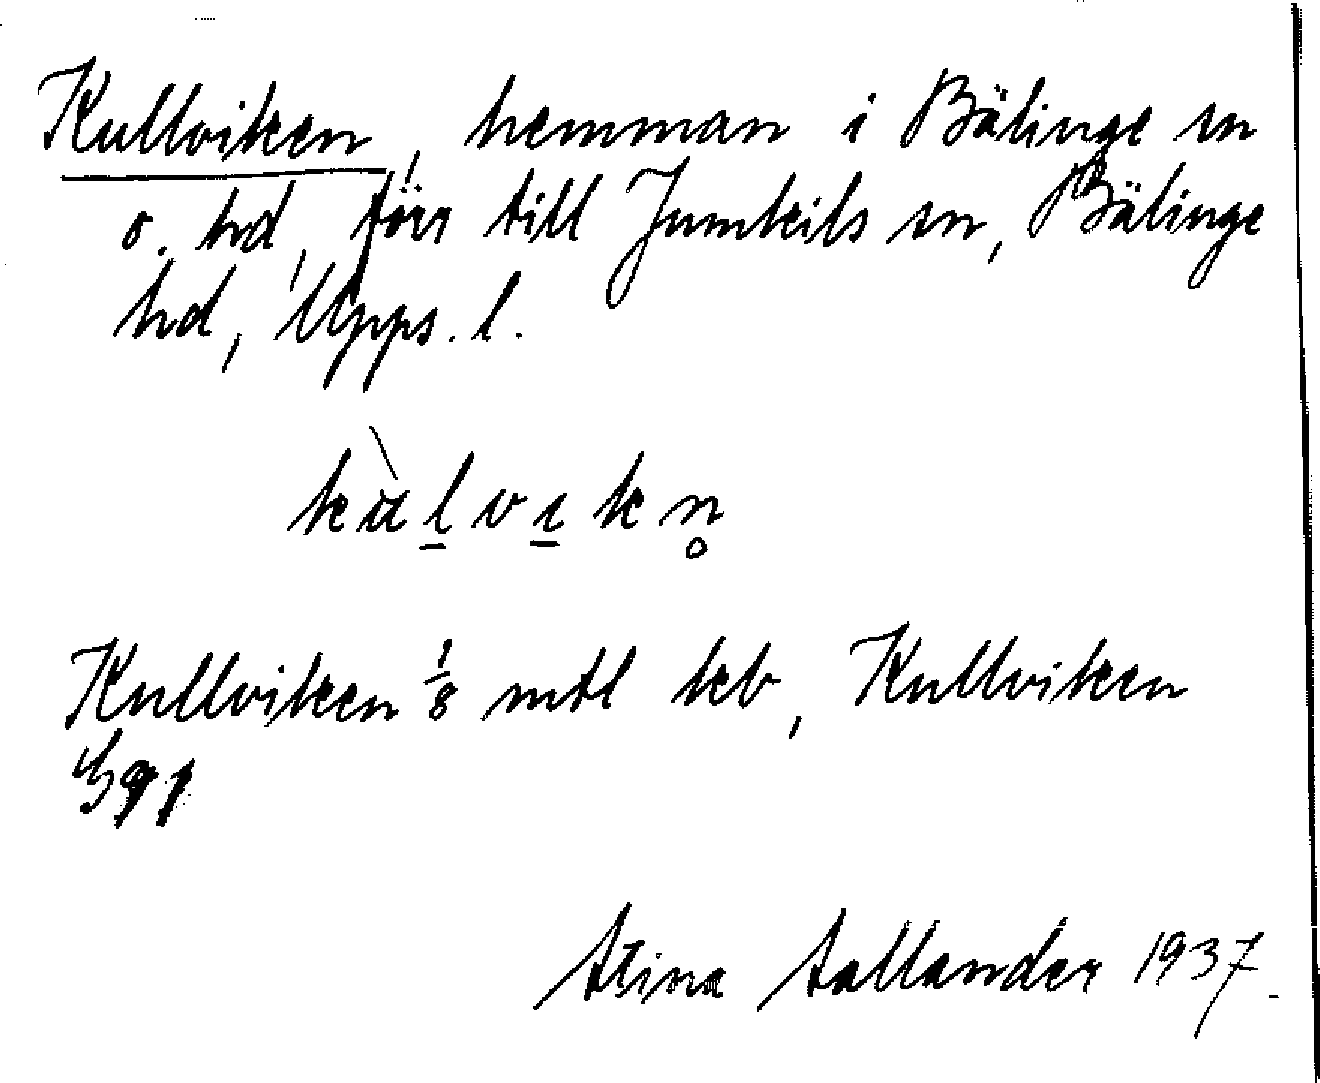 Kullviken, hemman i Bälinge sn
o. hd, förr till Jumkils sn, Bälinge
hd, Upps. l.
kùlvikn̥
Kullviken 1/8 mtl kb, Kullviken
Stina Sallander 1937.